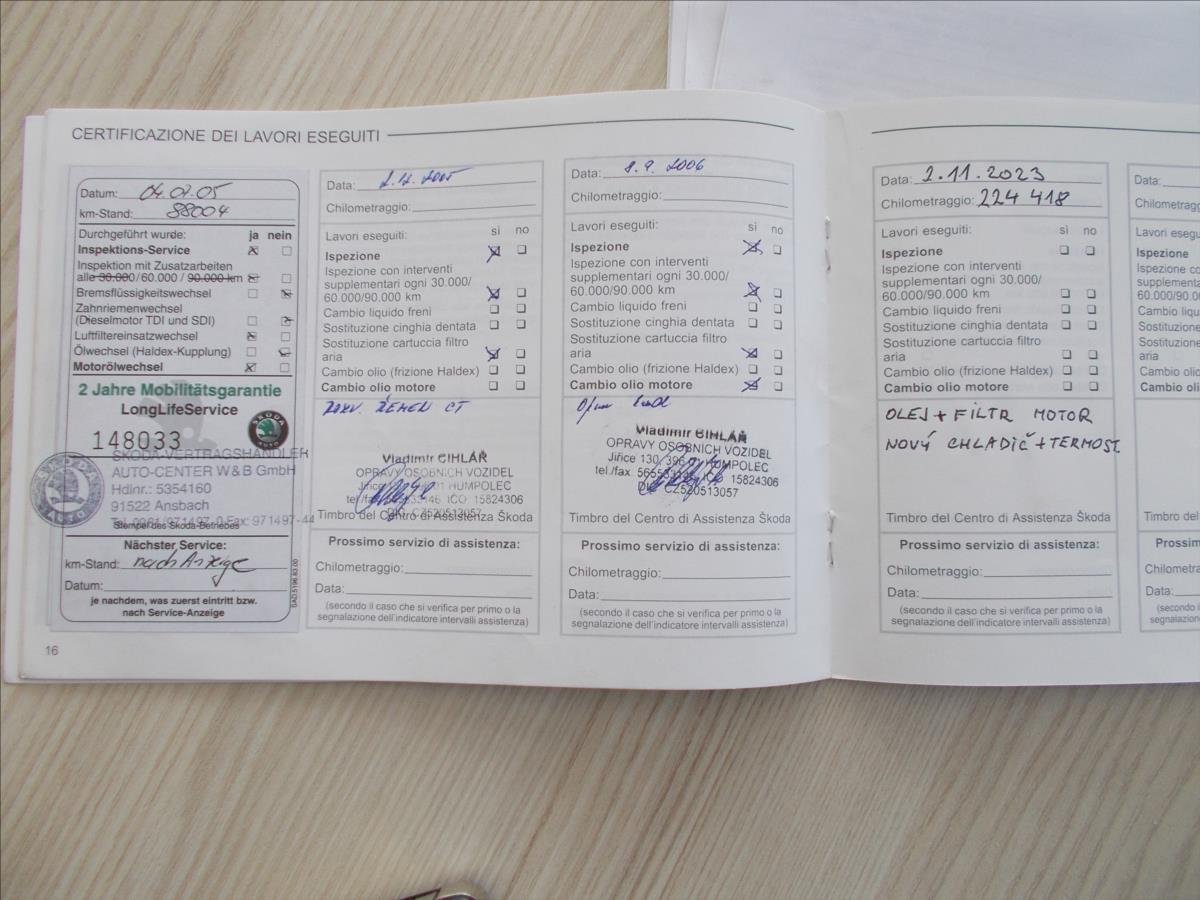 CERTIFICAZIONE DEI LAVORI ESEGUITI
Datum: 04.02.05
km-Stand: 88004
Durchgeführt wurde: ja nein
Inspektions-Service
Inspektion mit Zusatzarbeiten
alle 30.000/60.000 / 90.000 km
Bremsflüssigkeitswechsel
Zahnriemenwechsel
(Dieselmotor TDI und SDI)
Luftfiltereinsatzwechsel
Ölwechsel (Haldex-Kupplung)
Motorölwechsel
2 Jahre Mobilitätsgarantie
LongLifeService
148033
SKODA AUTO
SKODA-VERTRAGSHÄNDLER
AUTO-CENTER W&B GmbH
Hdlnr.: 5354160
91522 Ansbach
Tel. 0981/971497-0 Fax: 971497-44
Stempel des Skoda-Betriebes
Nächster Service:
km-Stand: nach Anzeige
Datum:
je nachdem, was zuerst eintritt bzw.
nach Service-Anzeige
SAD.5196.83.00
16
Data: 2.12.2005
Chilometraggio:
Lavori eseguiti: sì no
Ispezione
Ispezione con interventi
supplementari ogni 30.000/
60.000/90.000 km
Cambio liquido freni
Sostituzione cinghia dentata
Sostituzione cartuccia filtro
aria
Cambio olio (frizione Haldex)
Cambio olio motore
ŘEMEN
Vladimír CIHLÁŘ
OPRAVY OSOBNÍCH VOZIDEL
HUMPOLEC
IČO 15824306
CZ520513057
Timbro del Centro di Assistenza Škoda
Prossimo servizio di assistenza:
Chilometraggio:
Data:
(secondo il caso che si verifica per primo o la
segnalazione dell'indicatore intervalli assistenza)
Data: 8.9.2006
Chilometraggio:
Lavori eseguiti: sì no
Ispezione
Ispezione con interventi
supplementari ogni 30.000/
60.000/90.000 km
Cambio liquido freni
Sostituzione cinghia dentata
Sostituzione cartuccia filtro
aria
Cambio olio (frizione Haldex)
Cambio olio motore
Vladimír CIHLÁŘ
OPRAVY OSOBNÍCH VOZIDEL
Jiřice 130, 396 01 HUMPOLEC
tel./fax IČO 15824306
DIČ CZ520513057
Timbro del Centro di Assistenza Škoda
Prossimo servizio di assistenza:
Chilometraggio:
Data:
(secondo il caso che si verifica per primo o la
segnalazione dell'indicatore intervalli assistenza)
Data: 2.11.2023
Chilometraggio: 224 418
Lavori eseguiti: sì no
Ispezione
Ispezione con interventi
supplementari ogni 30.000/
60.000/90.000 km
Cambio liquido freni
Sostituzione cinghia dentata
Sostituzione cartuccia filtro
aria
Cambio olio (frizione Haldex)
Cambio olio motore
OLEJ + FILTR MOTOR
NOVÝ CHLADIČ + TERMOST.
Timbro del Centro di Assistenza Škoda
Prossimo servizio di assistenza:
Chilometraggio:
Data:
(secondo il caso che si verifica per primo o la
segnalazione dell'indicatore intervalli assistenza)
Data:
Chilometragg
Lavori esegu
Ispezione
Ispezione co
supplementa
60.000/90.00
Cambio liqui
Sostituzione
Sostituzione
aria
Cambio olio
Cambio oli
Timbro del
Prossim
Chilometra
Data:
(secondo i
segnalazion